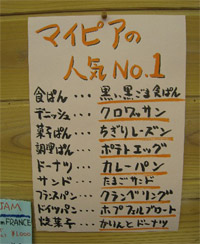 マイピアの
人気No.1
食ぱん・・・黒い黒ごま食ぱん
デニッシュ・・・クロワッサン
菓子ぱん・・・ちぎりレーズン
調理ぱん・・・ポテトエッグ
ドーナツ・・・カレーパン
サンド・・・たまごサンド
フランスパン・・・クランベリーリング
ドイツパン・・・ホップフェルブロート
焼菓子・・・かりんとドーナツ
JAM
FRANCE